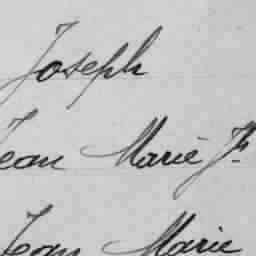 Joseph
Jean Marie Jh
Jean Marie